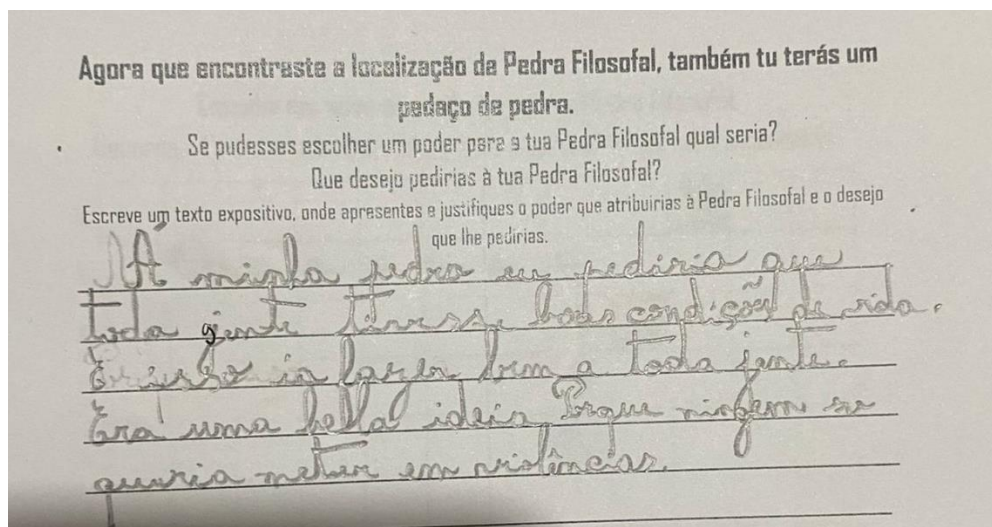 Agora que encontraste a localização da Pedra Filosofal, também tu terás um
pedaço de pedra.
Se pudesses escolher um poder para a tua Pedra Filosofal qual seria?
Que desejo pedirias à tua Pedra Filosofal?
Escreve um texto expositivo, onde apresentes e justifiques o poder que atribuirias à Pedra Filosofal e o desejo
que lhe pedirias.
Á minha pedra eu pediria que
toda gente tivesse boas condições de vida.
E isso ia fazer bem a toda jente.
Era uma bella ideia Porque ningem se
queria meter em violências.